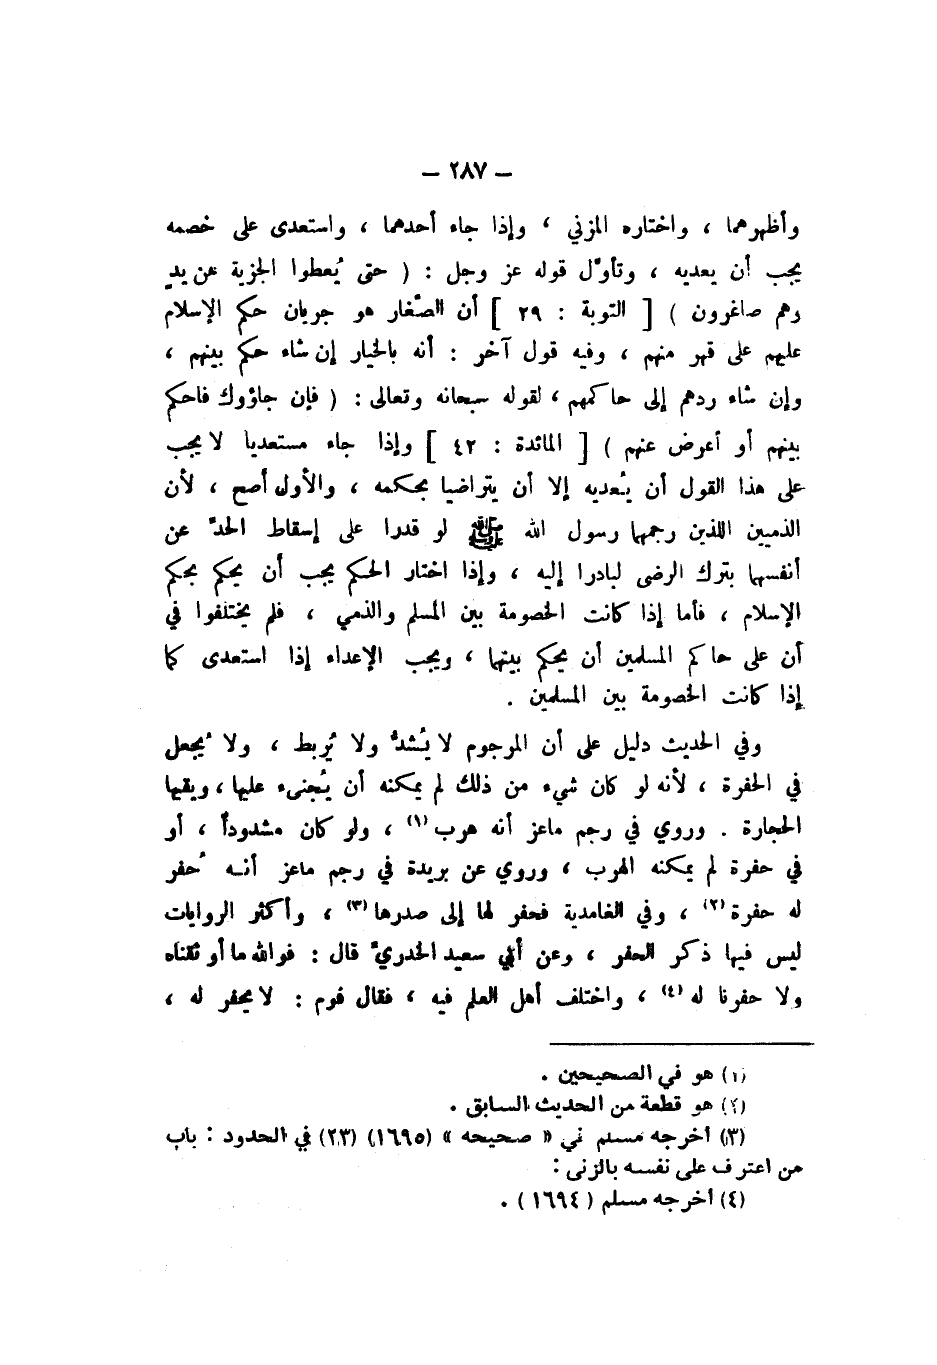 – ٢٨٧ –
وأظهرهما ، واختاره المزني ، وإذا جاء أحدهما ، واستعدى على خصمه
يجب أن يعديه ، وتأوَّل قوله عز وجل : ( حتى يُعطوا الجزية عن يدٍ
وهم صاغرون ) [ التوبة : ٢٩ ] أن الصَّغار هو جريان حكم الإسلام
عليهم على قهر منهم ، وفيه قول آخر : أنه بالخيار إن شاء حكم بينهم ،
وإن شاء ردهم إلى حاكمهم ، لقوله سبحانه وتعالى : ( فإن جاؤوك فاحكم
بينهم أو أعرض عنهم ) [ المائدة : ٤٢ ] وإذا جاء مستعديا لا يجب
على هذا القول أن يُعديه إلا أن يتراضيا بحكمه ، والأول أصح ، لأن
الذميين اللذين رجمهما رسول الله ﷺ لو قدرا على إسقاط الحدّ عن
أنفسهما بترك الرضى لبادرا إليه ، وإذا اختار الحكم يجب أن يحكم بحكم
الإسلام ، فأما إذا كانت الخصومة بين المسلم والذمي ، فلم يختلفوا في
أن على حاكم المسلمين أن يحكم بينهما ، ويجب الإعداء إذا استعدى كما
إذا كانت الخصومة بين المسلمين .
وفي الحديث دليل على أن المرجوم لا يُشدُّ ولا يُربط ، ولا يُجعل
في الحفرة ، لأنه لو كان شيء من ذلك لم يمكنه أن يُجنىء عليها ، ويقيها
الحجارة . وروي في رجم ماعز أنه هرب (١) ، ولو كان مشدوداً ، أو
في حفرة لم يمكنه الهرب ، وروي عن بريدة في رجم ماعز أنه حُفر
له حفرة (٢) ، وفي الغامدية فحفر لها إلى صدرها (٣) ، وأكثر الروايات
ليس فيها ذكر الحفر ، وعن أبي سعيد الخدريّ قال : فوالله ما أوثقناه
ولا حفرنا له (٤) ، واختلف أهل العلم فيه ، فقال قوم : لا يحفر له ،
(١) هو في الصحيحين .
(٢) هو قطعة من الحديث السابق .
(٣) أخرجه مسلم في « صحيحه » (١٦٩٥) (٢٣) في الحدود : باب
من اعترف على نفسه بالزنى :
(٤) أخرجه مسلم ( ١٦٩٤ ) .